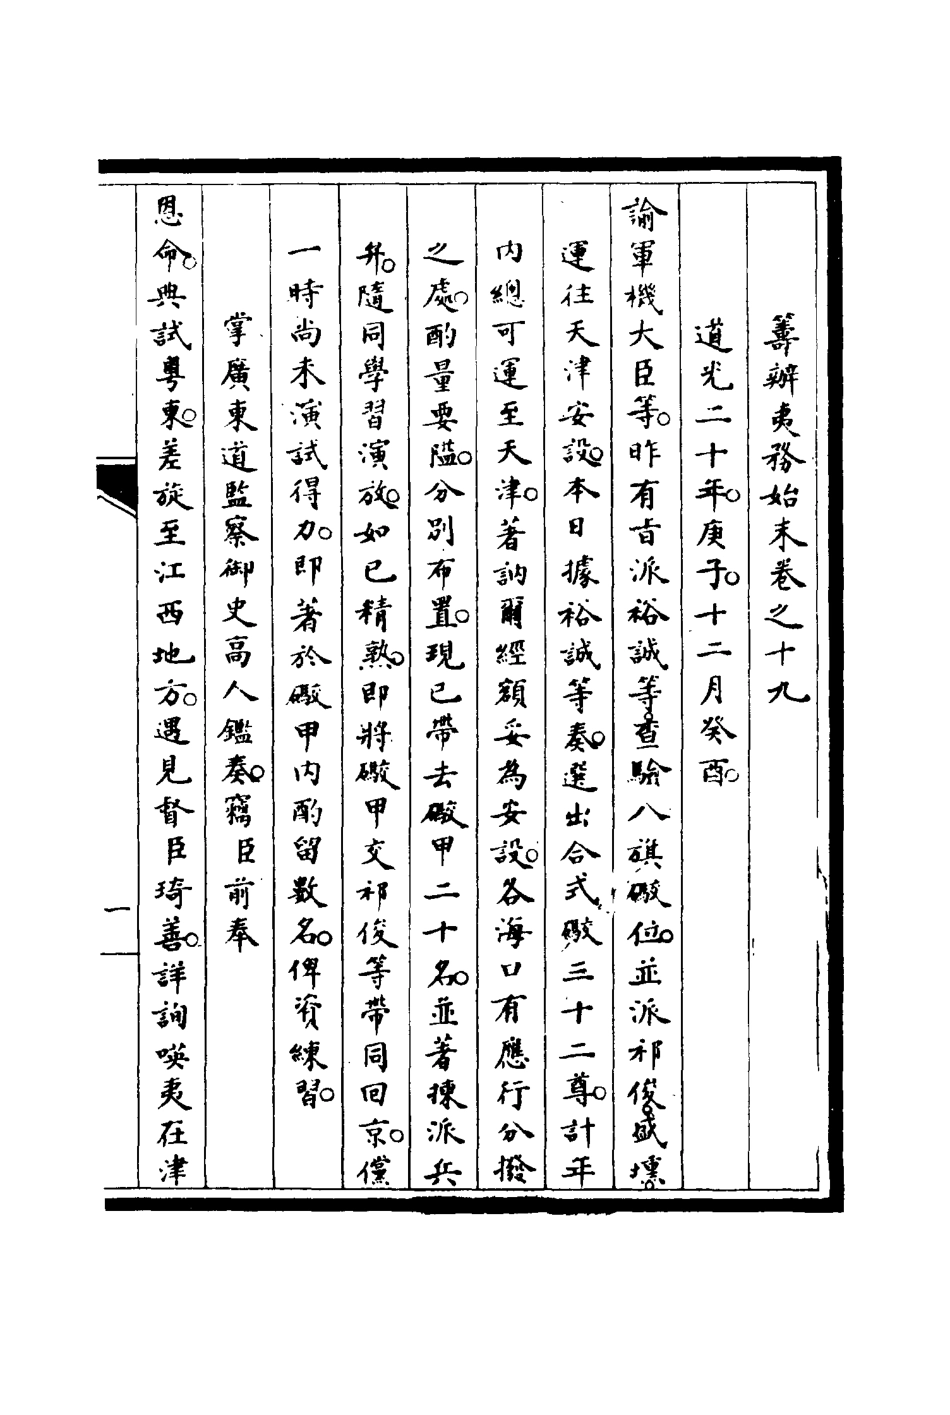 籌辦夷務始末卷之十九
道光二十年。庚子。十二月癸酉。
諭軍機大臣等。昨有旨派裕誠等。查驗八旗礮位。並派祁俊。盛壎。
運往天津安設。本日據裕誠等奏。選出合式礮三十二尊。計年
内總可運至天津。著訥爾經額妥為安設。各海口有應行分撥
之處。酌量要隘。分別布置。現已帶去礮甲二十名。並著揀派兵
弁。隨同學習演放。如已精熟。即將礮甲交祁俊等帶同回京。儻
一時尚未演試得力。即著於礮甲内酌留數名。俾資練習。
掌廣東道監察御史高人鑑奏。竊臣前奉
恩命。典試粵東。差旋至江西地方。遇見督臣琦善。詳詢𠸄夷在津
一